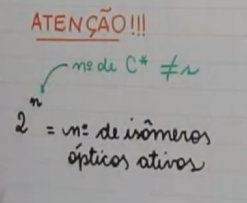 ATENÇÃO!!!
nº de C* ≠s
2ⁿ = nº de isômeros
ópticos ativos